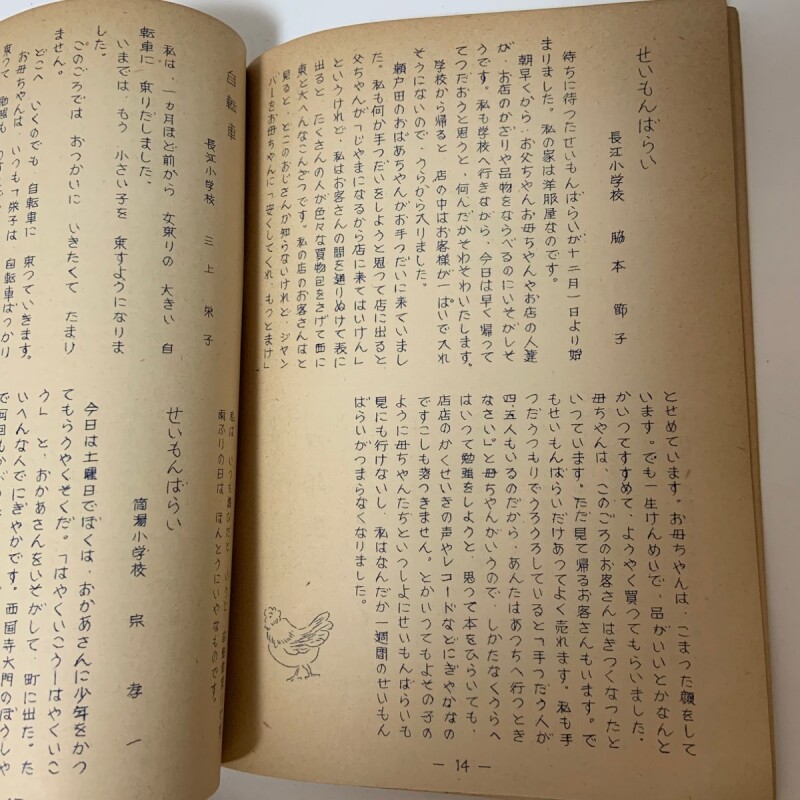 せいもんばらい
長江小学校 脇本節子
待ちに待つたせいもんばらいが十二月一日より始
まりました。私の家は洋服屋なのです。
朝早くから、お父ちゃんお母ちゃんやお店の人達
が、お店のかざりや品物をならべるのにいそがしそ
うです。私も学校へ行きながら、今日は早く帰って
てつだおうと思うと、何んだかそわそわいたします。
学校から帰ると、店の中はお客様が一ぱいで入れ
そうにないので、うらから入りました。
瀬戸田のおばあちゃんがお手つだいに来ていまし
た。私も何か手つだいをしようと思って店に出ると
父ちゃんが「じゃまになるから店に来てはいけん」
というけれど、私はお客さんの間を通りぬけて表に
出ると、たくさんの人が色々な買物包をさげて西に
東と大へんなこんざつです。私の店のお客さんはと
見ると、どこのおじさんか知らないけれど、ジャン
バーをお母ちゃんに「安くしてくれ、もっとまけ」
とせめています。お母ちゃんは、こまった顔をして
います。でも一生けんめいで、品がいいとかなんと
かいつてすすめて、ようやく買つてもらいました。
母ちゃんは、このごろのお客さんはきつくなつたと
いつています。ただ見て帰るお客さんもいます。で
もせいもんばらいだけあつてよく売れます。私も手
つだうつもりでうろうろしていると「手つだう人が
四・五人もいるのだから、あんたはあつちへ行つとき
なさい」と母ちゃんがいうので、しかたなくうらへ
はいつて勉強をしようと、思つて本をひらいても、
店店のかくせいきの声やレコードなどにぎやかなの
ですこしも落つきません。とかいつてもよその子の
ように母ちゃんたちといつしよにせいもんばらいも
見にも行けないし、私はなんだか一週間のせいもん
ばらいがつまらなくなりました。
— 14 —
自転車
長江小学校 三上栄子
私は、一ヵ月ほど前から 女乗りの 大きい 自
転車に 乗りだしました。
いまでは、もう 小さい子を 乗すようになりま
した。
このごろでは おつかいに いきたくて たまり
ません。
どこへ いくのでも 自転車に 乗つていきます。
お母ちゃんは、いつも「栄子は 自転車ばつかり
雨ふりの日は ほんとうにいやなものです。
せいもんばらい
筒湯小学校 宗孝一
今日は土曜日でぼくは、おかあさんに少年をかつ
てもらうやくそくだ。「はやくいこうーはやくいこ
う」と、おかあさんをいそがして、町に出た。た
いへんな人でにぎやかです。西国寺大門のぼうしや